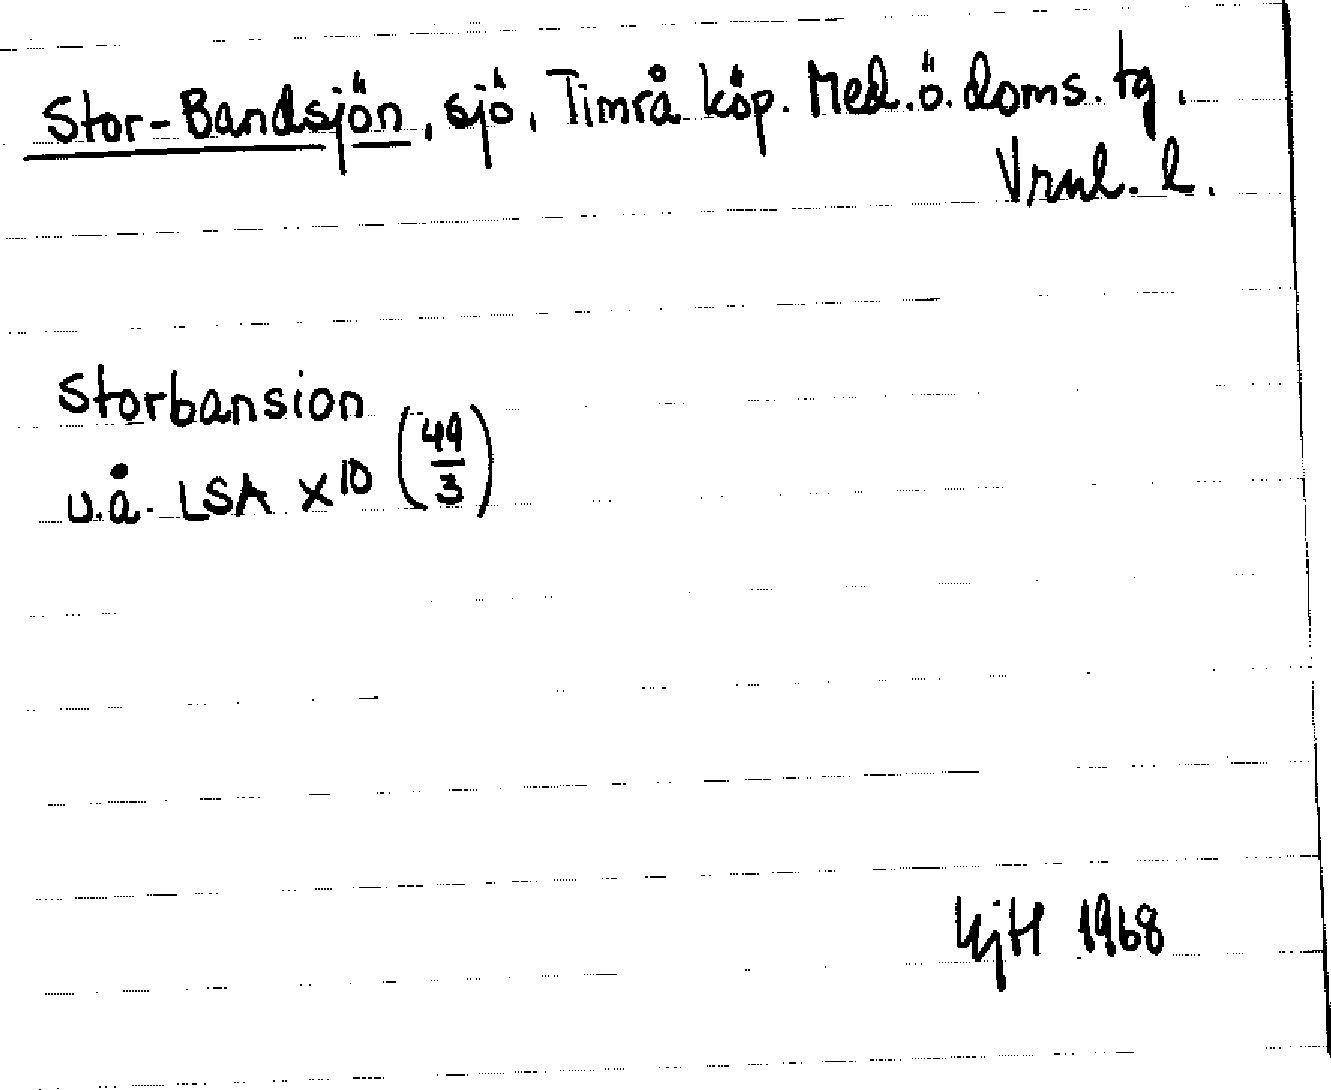 Stor-Bandsjön, sjö, Timrå köp. Med. ö. doms. tg,
Vrnl. l.
Storbansion
u.å. LSA X10 (49/3)
KjH 1968